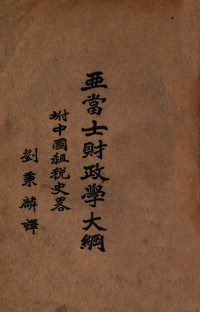 亞當士財政學大綱
坿中國租稅史畧
劉秉麟譯